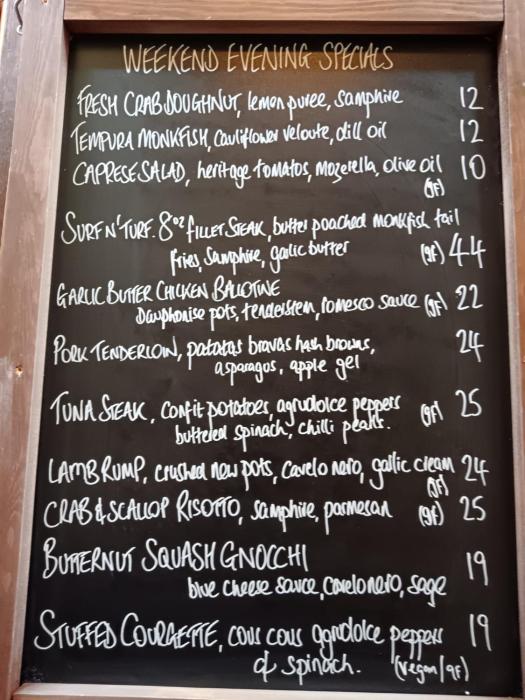 WEEKEND EVENING SPECIALS
FRESH CRAB DOUGHNUT, lemon puree, Samphire 12
TEMPURA MONKFISH, Cauliflower veloute, dill oil 12
CAPRESE SALAD, heritage tomatos, Mozerella, olive oil 10
(gf)
SURF N' TURF. 8oz fILLET STEAK, butter poached monkfish tail
fries, Samphire, garlic butter (gf) 44
GARLIC BUTTER CHICKEN BALLOTINE
Dauphonise pots, tenderstem, romesco sauce (gf) 22
PORK TENDERLOIN, patatas bravas hash browns, 24
asparagus, apple gel
TUNA STEAK, Confit potatoes, agrudolce peppers (gf) 25
buttered spinach, chilli pearls.
LAMB RUMP, crushed new pots, Cavelo nero, garlic cream 24
(gf)
CRAB & SCALLOP RISOTTO, Samphire, parmesan (gf) 25
BUTTERNUT SQUASH GNOCCHI 19
blue cheese sauce, Cavelo nero, sage
STUFFED COURGETTE, cous cous agrdolce peppers 19
& spinach. (vegan/gf)